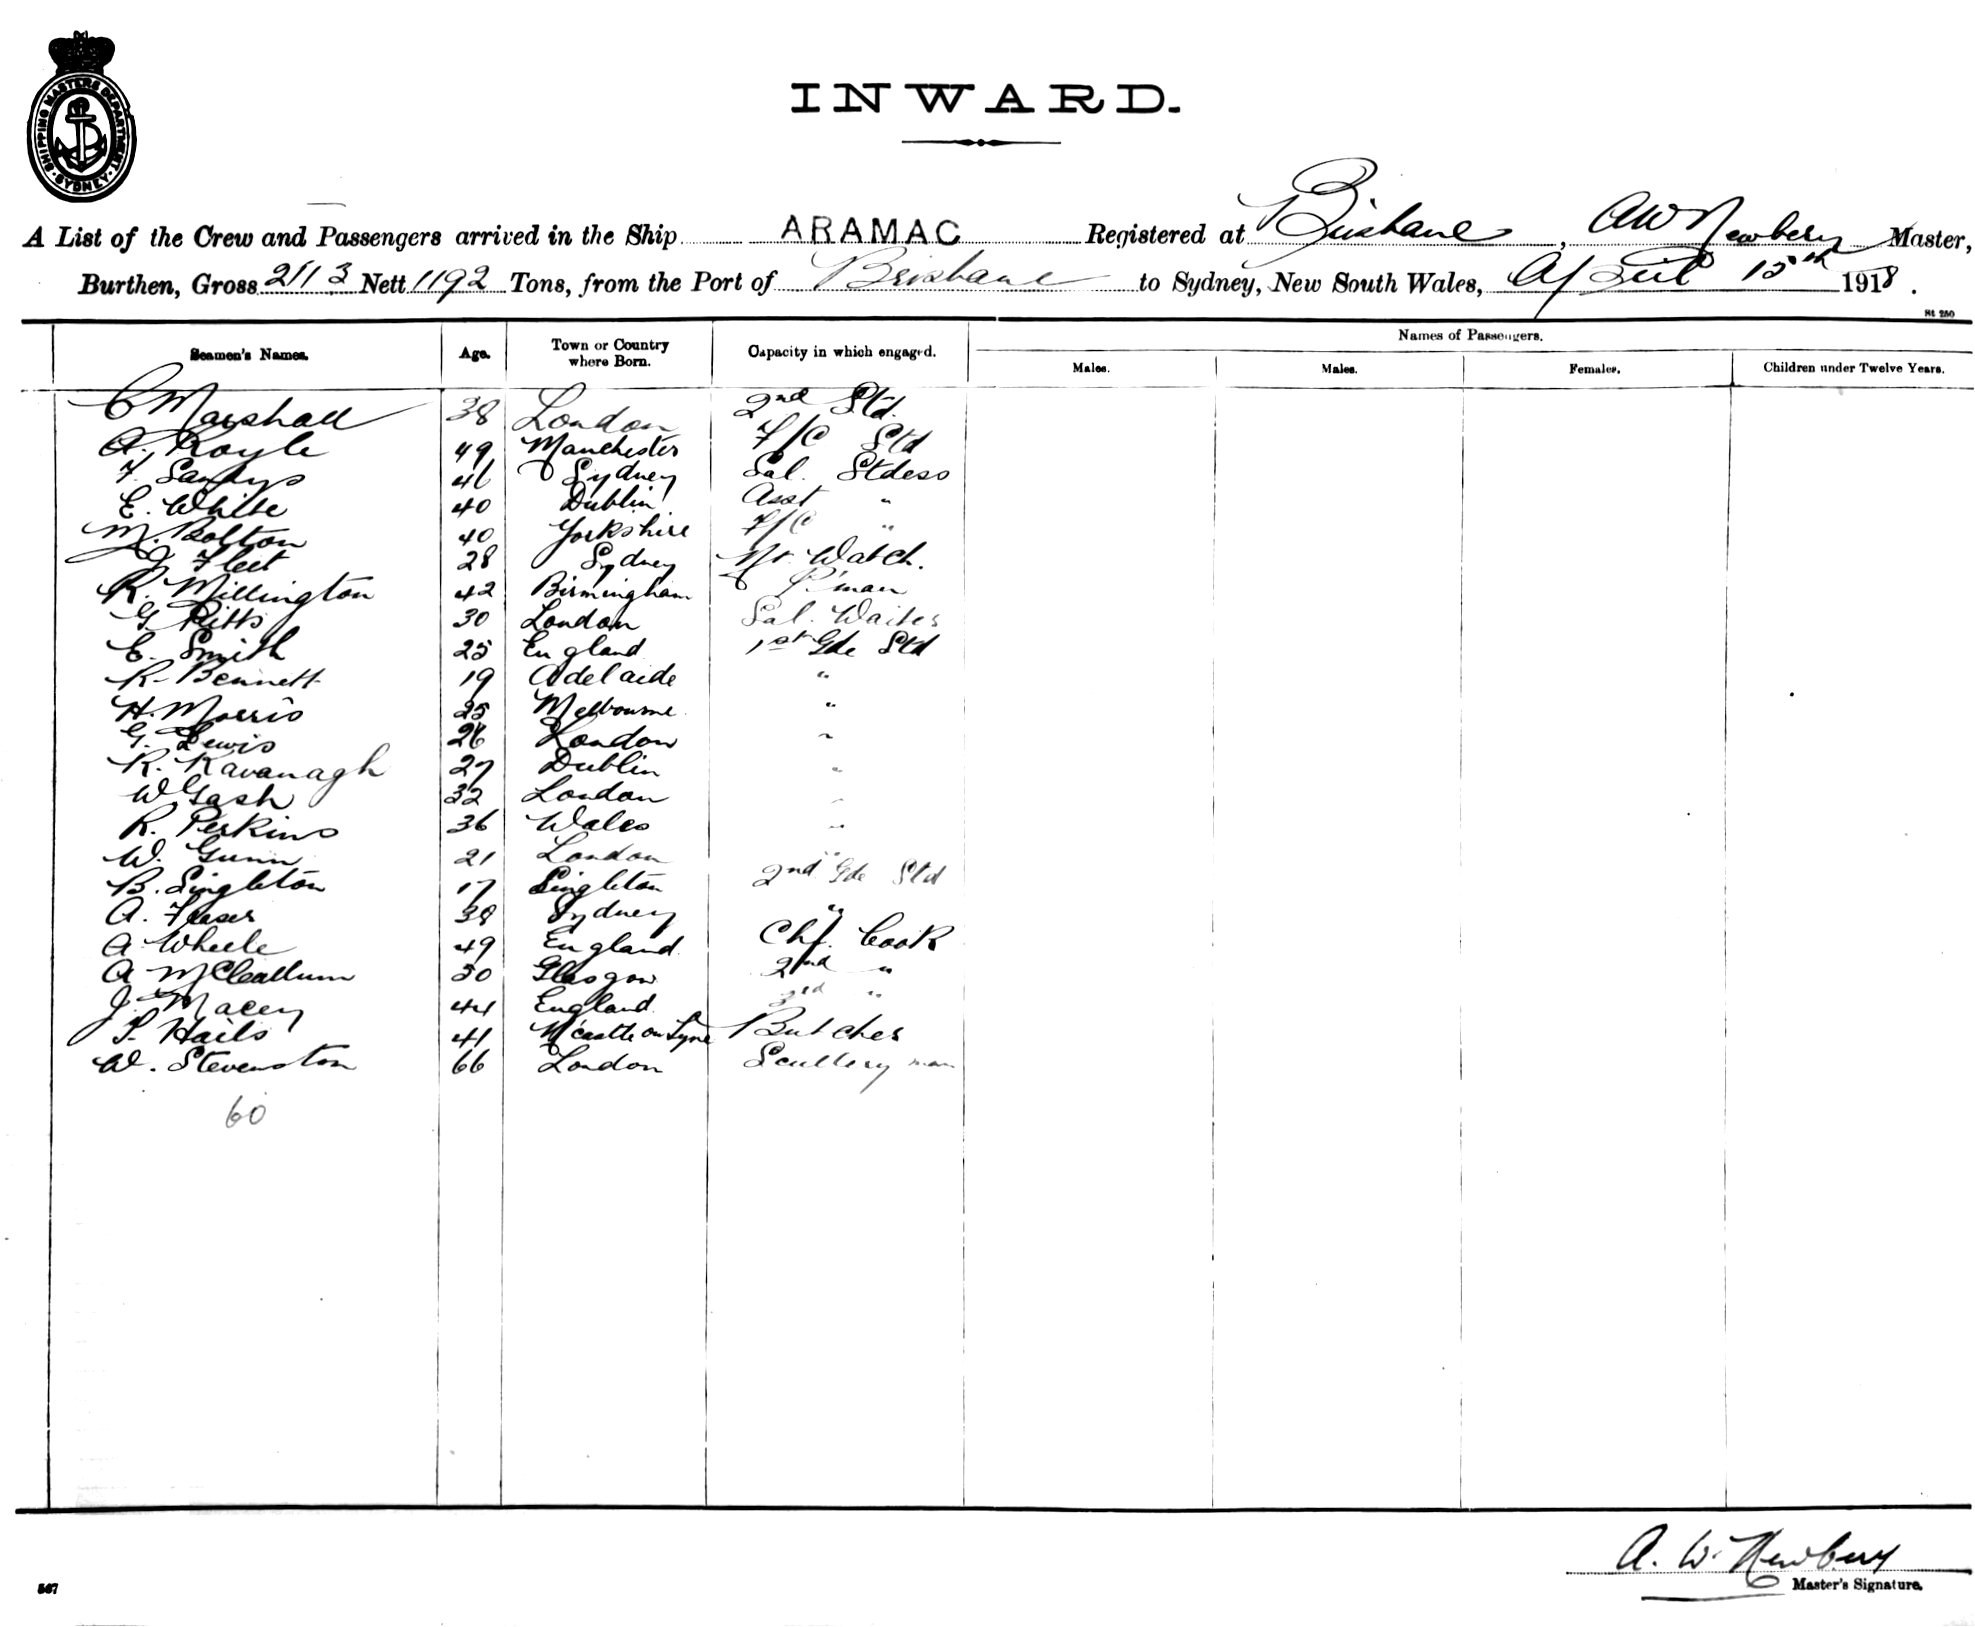 SHIPPING MASTERS DEPARTMENT · SYDNEY ·
INWARD.
A List of the Crew and Passengers arrived in the Ship ARAMAC Registered at Brisbane, AW Newbery Master,
Burthen, Gross 2113 Nett 1192 Tons, from the Port of Brisbane to Sydney, New South Wales, April 15th 1918.
St 250
Names of Passengers.
Seamen's Names. Age. Town or Country where Born. Capacity in which engaged. Males. Males. Females. Children under Twelve Years.
C Marshall 38 London 2nd Std.
A. Royle 49 Manchester F/C Std
F. Sandys 46 Sydney Sal. Stdess
E. White 40 Dublin Asst "
M. Bolton 40 Yorkshire F/C "
J Fleet 28 Sydney Nt. Watch.
R. Millington 42 Birmingham P'man
G. Pitts 30 London Sal. Waiter
E. Smith 25 England 1st Gde Std
R. Bennett 19 Adelaide "
H. Morris 25 Melbourne "
G. Lewis 26 London "
R. Kavanagh 27 Dublin "
W Gash 32 London "
R. Perkins 36 Wales "
W. Gunn 21 London "
B. Singleton 17 Singleton 2nd Gde Std
A. Fraser 38 Sydney "
A. Wheele 49 England Chf. Cook
A McCleallum 50 Glasgow 2nd "
J. Macey 44 England 3rd "
P. Hails 41 N'castle on Tyne Butcher
W. Stevenston 66 London Scullery man
60
A. W. Newbery
Master's Signature.
567